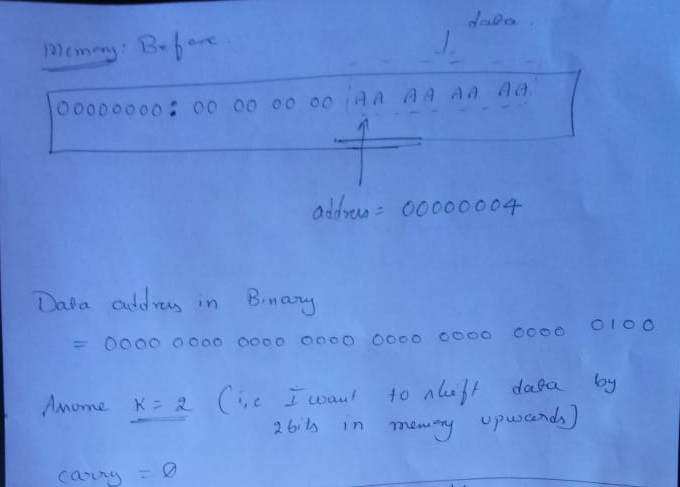 data.
Memory: Before.
00000000: 00 00 00 00 AA AA AA AA
address = 00000004
Data address in Binary
= 0000 0000 0000 0000 0000 0000 0000 0100
Assume K = 2 (i.e I want to shift data by
2 bits in memory upwards)
carry = 0